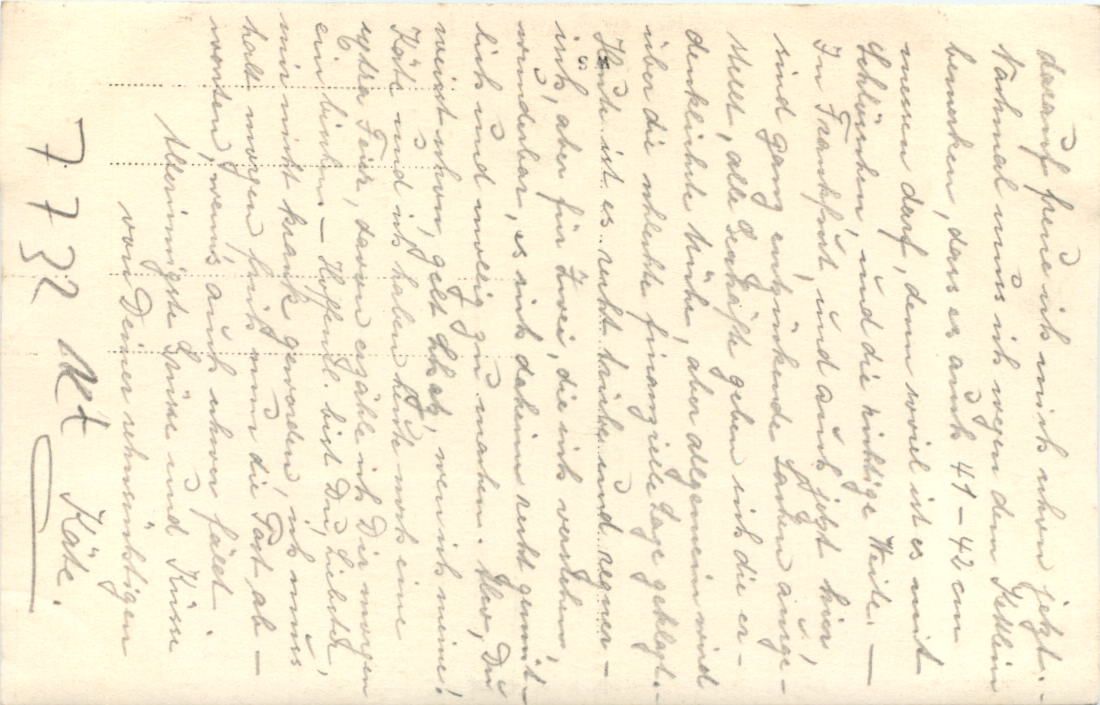 darauf freue ich mich schon jetzt. -
Nochmal muss ich wegen dem Kettlein
bemerken, dass es auch 41-42 cm
messen darf, denn soviel ist es mit
Schlösschen, und die richtige Weite. —
In Frankfurt, und auch jetzt hier,
sind ganz entzückende Sachen ausge-
stellt, alle Geschäfte geben sich die er-
denklichste Mühe, aber allgemein wird
über die schlechte finanzielle Lage geklagt. -
Heute ist es recht trübe und regner-
isch, aber für Zwei, die sich verstehen,
wunderbar, es sich daheim recht gemüt-
lich und mollig zu machen. Aber, Du
weisst schon, gelt Schatz, wen ich meine!
Käte und ich haben heute noch eine
extra Feier, davon erzähle ich Dir morgen
ein bischen - Hoffentl. bist Du, Liebster,
mir nicht krank geworden, ich muss
halt morgen früh nun die Post ab-
warten, wenn's auch schwer fällt.
Herzinnigste Grüsse und Küsse
von Deiner sehnsüchtigen
Käte.
7732